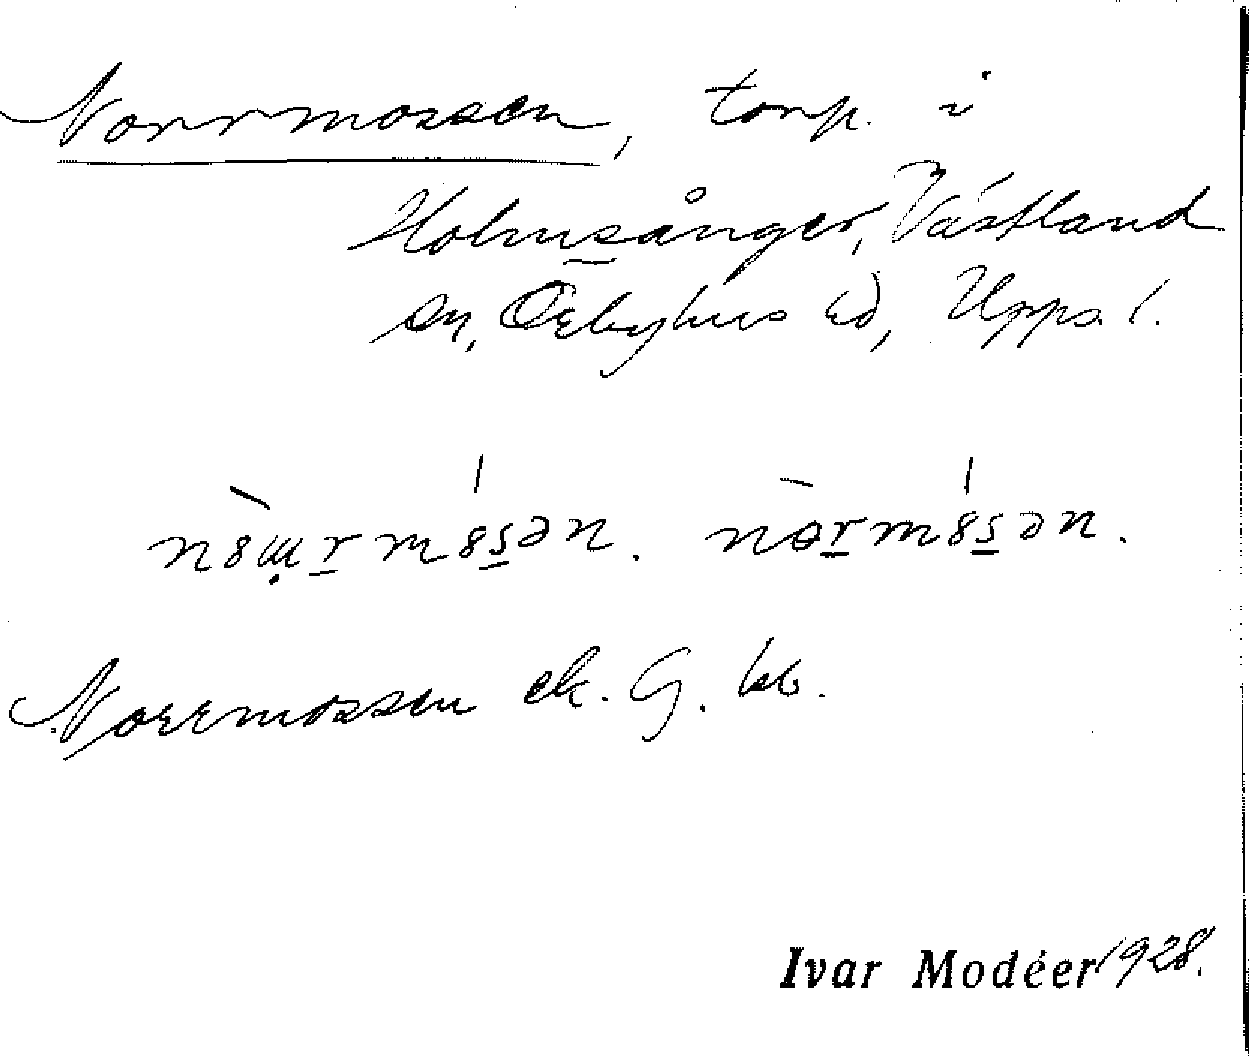 Norrmossen, torp. i
Holmsånger, Västland
sn, Örbyhus hd, Upps. l.
Norrmossen ek. G. kb.
Ivar Modéer 1928.